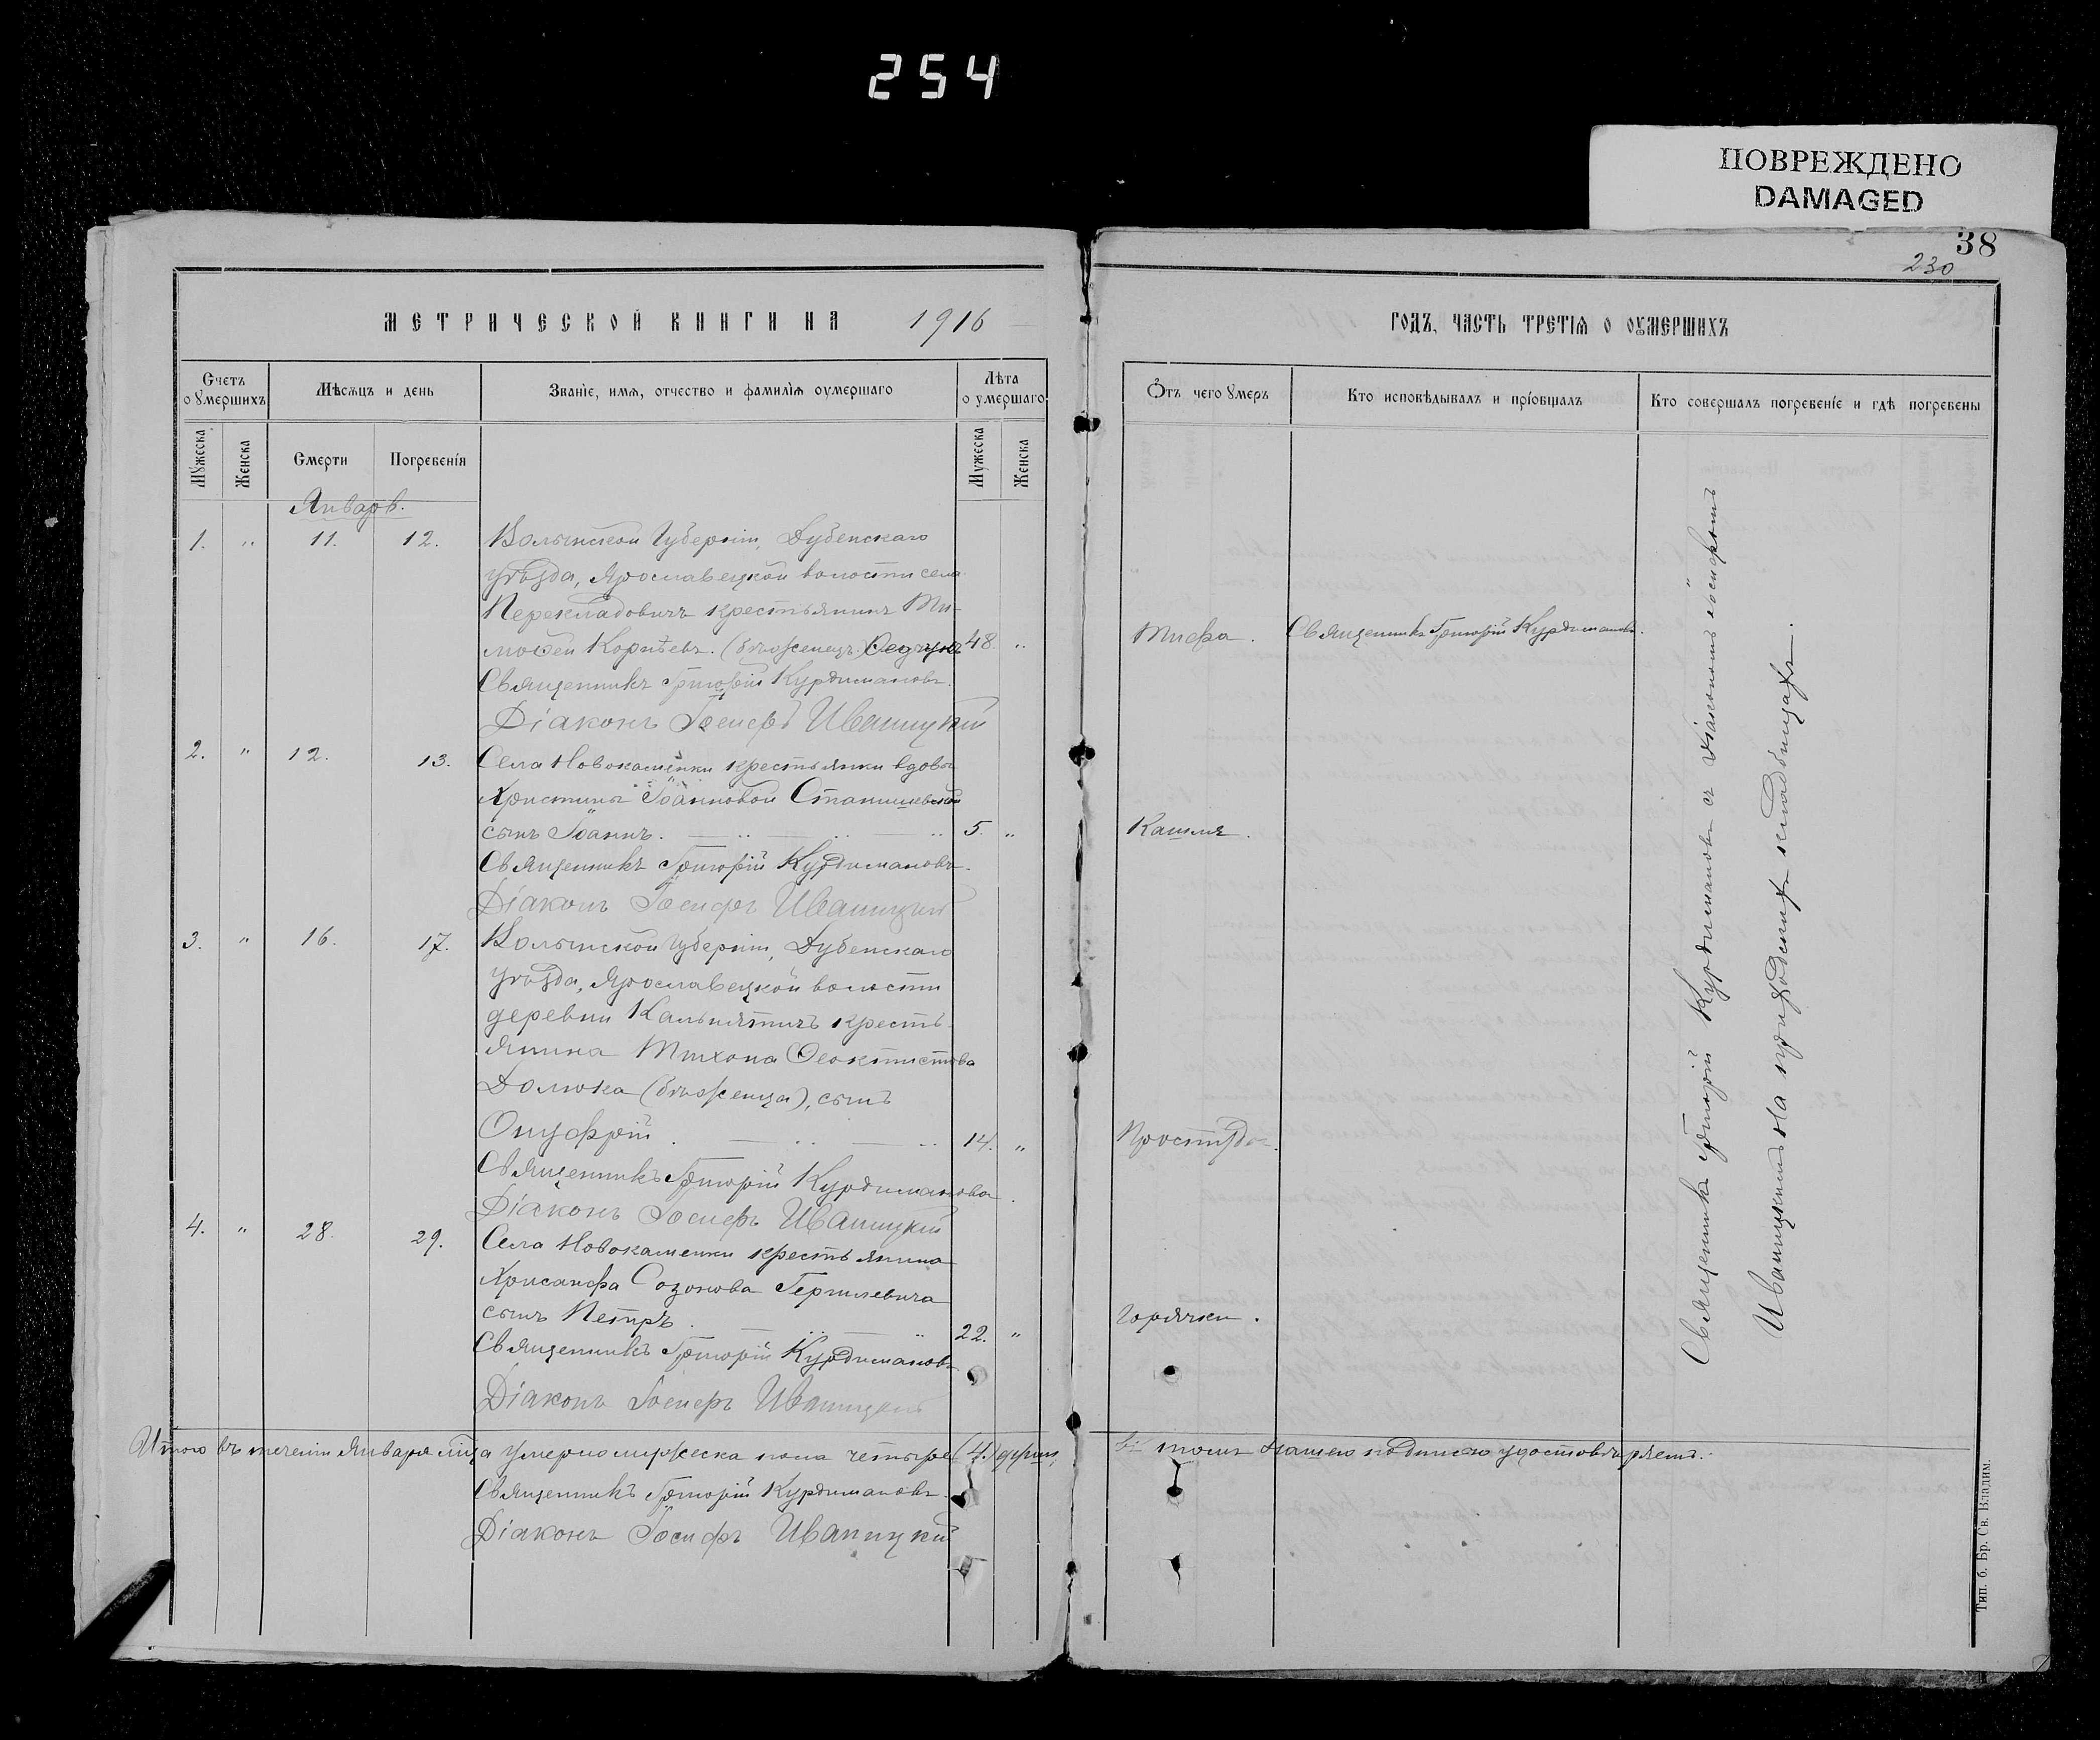 254
ПОВРЕЖДЕНО
DAMAGED
38
230
МЕТРИЧЕСКОЙ КНИГИ НА 1916
Счетъ оумершихъ
Мѣсяцъ и день
Званіе, имя, отчество и фамилія оумершаго
Лѣта оумершаго
Мужеска
Женска
Смерти
Погребенія
Мужеска
Женска
Январь.
1. " 11. 12. Волынской Губерніи, Дубенскаго
уѣзда, Ярославецкой волости села
Перекладовичъ крестьянинъ Ти-
мофей Корнѣевъ (бѣженецъ) 48 "
Священникъ Григорій Курдимановъ.
Діаконъ Іосифъ Иваницкій
2. " 12. 13. Села Новокаменки крестьянки вдовы
Христины Іоанновой Станишевской
сынъ Іоаннъ. 5. "
Священникъ Григорій Курдимановъ.
Діаконъ Іосифъ Иваницкій
3. " 16. 17. Волынской Губерніи, Дубенскаго
уѣзда, Ярославецкой волости
деревни крестья-
янина Тихона Феоктистова
Долюка (бѣженца), сынъ
Онуфрій. 14. "
Священникъ Григорій Курдимановъ.
Діаконъ Іосифъ Иваницкій
4. " 28. 29. Села Новокаменки крестьянина
Хрисанфа Созонова
сынъ Петръ. 22. "
Священникъ Григорій Курдимановъ
Діаконъ Іосифъ Иваницкій
Итого въ теченіи Января мца умерло мужеска пола четыре (4) души,
Священникъ Григорій Курдимановъ.
Діаконъ Іосифъ Иваницкій
ГОДЪ, ЧАСТЬ ТРЕТІЯ О ОУМЕРШИХЪ
Отъ чего умеръ
Кто исповѣдывалъ и пріобщалъ
Кто совершалъ погребеніе и гдѣ погребены
Тифа. Священникъ Григорій Курдимановъ.
Кашля.
Простуды.
Горячки.
Священникъ Григорій Курдимановъ съ Діакономъ Іосифомъ
Иваницкимъ на приходскихъ кладбищахъ.
въ томъ нашею подписью удостовѣряемъ.
Тип. б. Бр. Св. Владим.